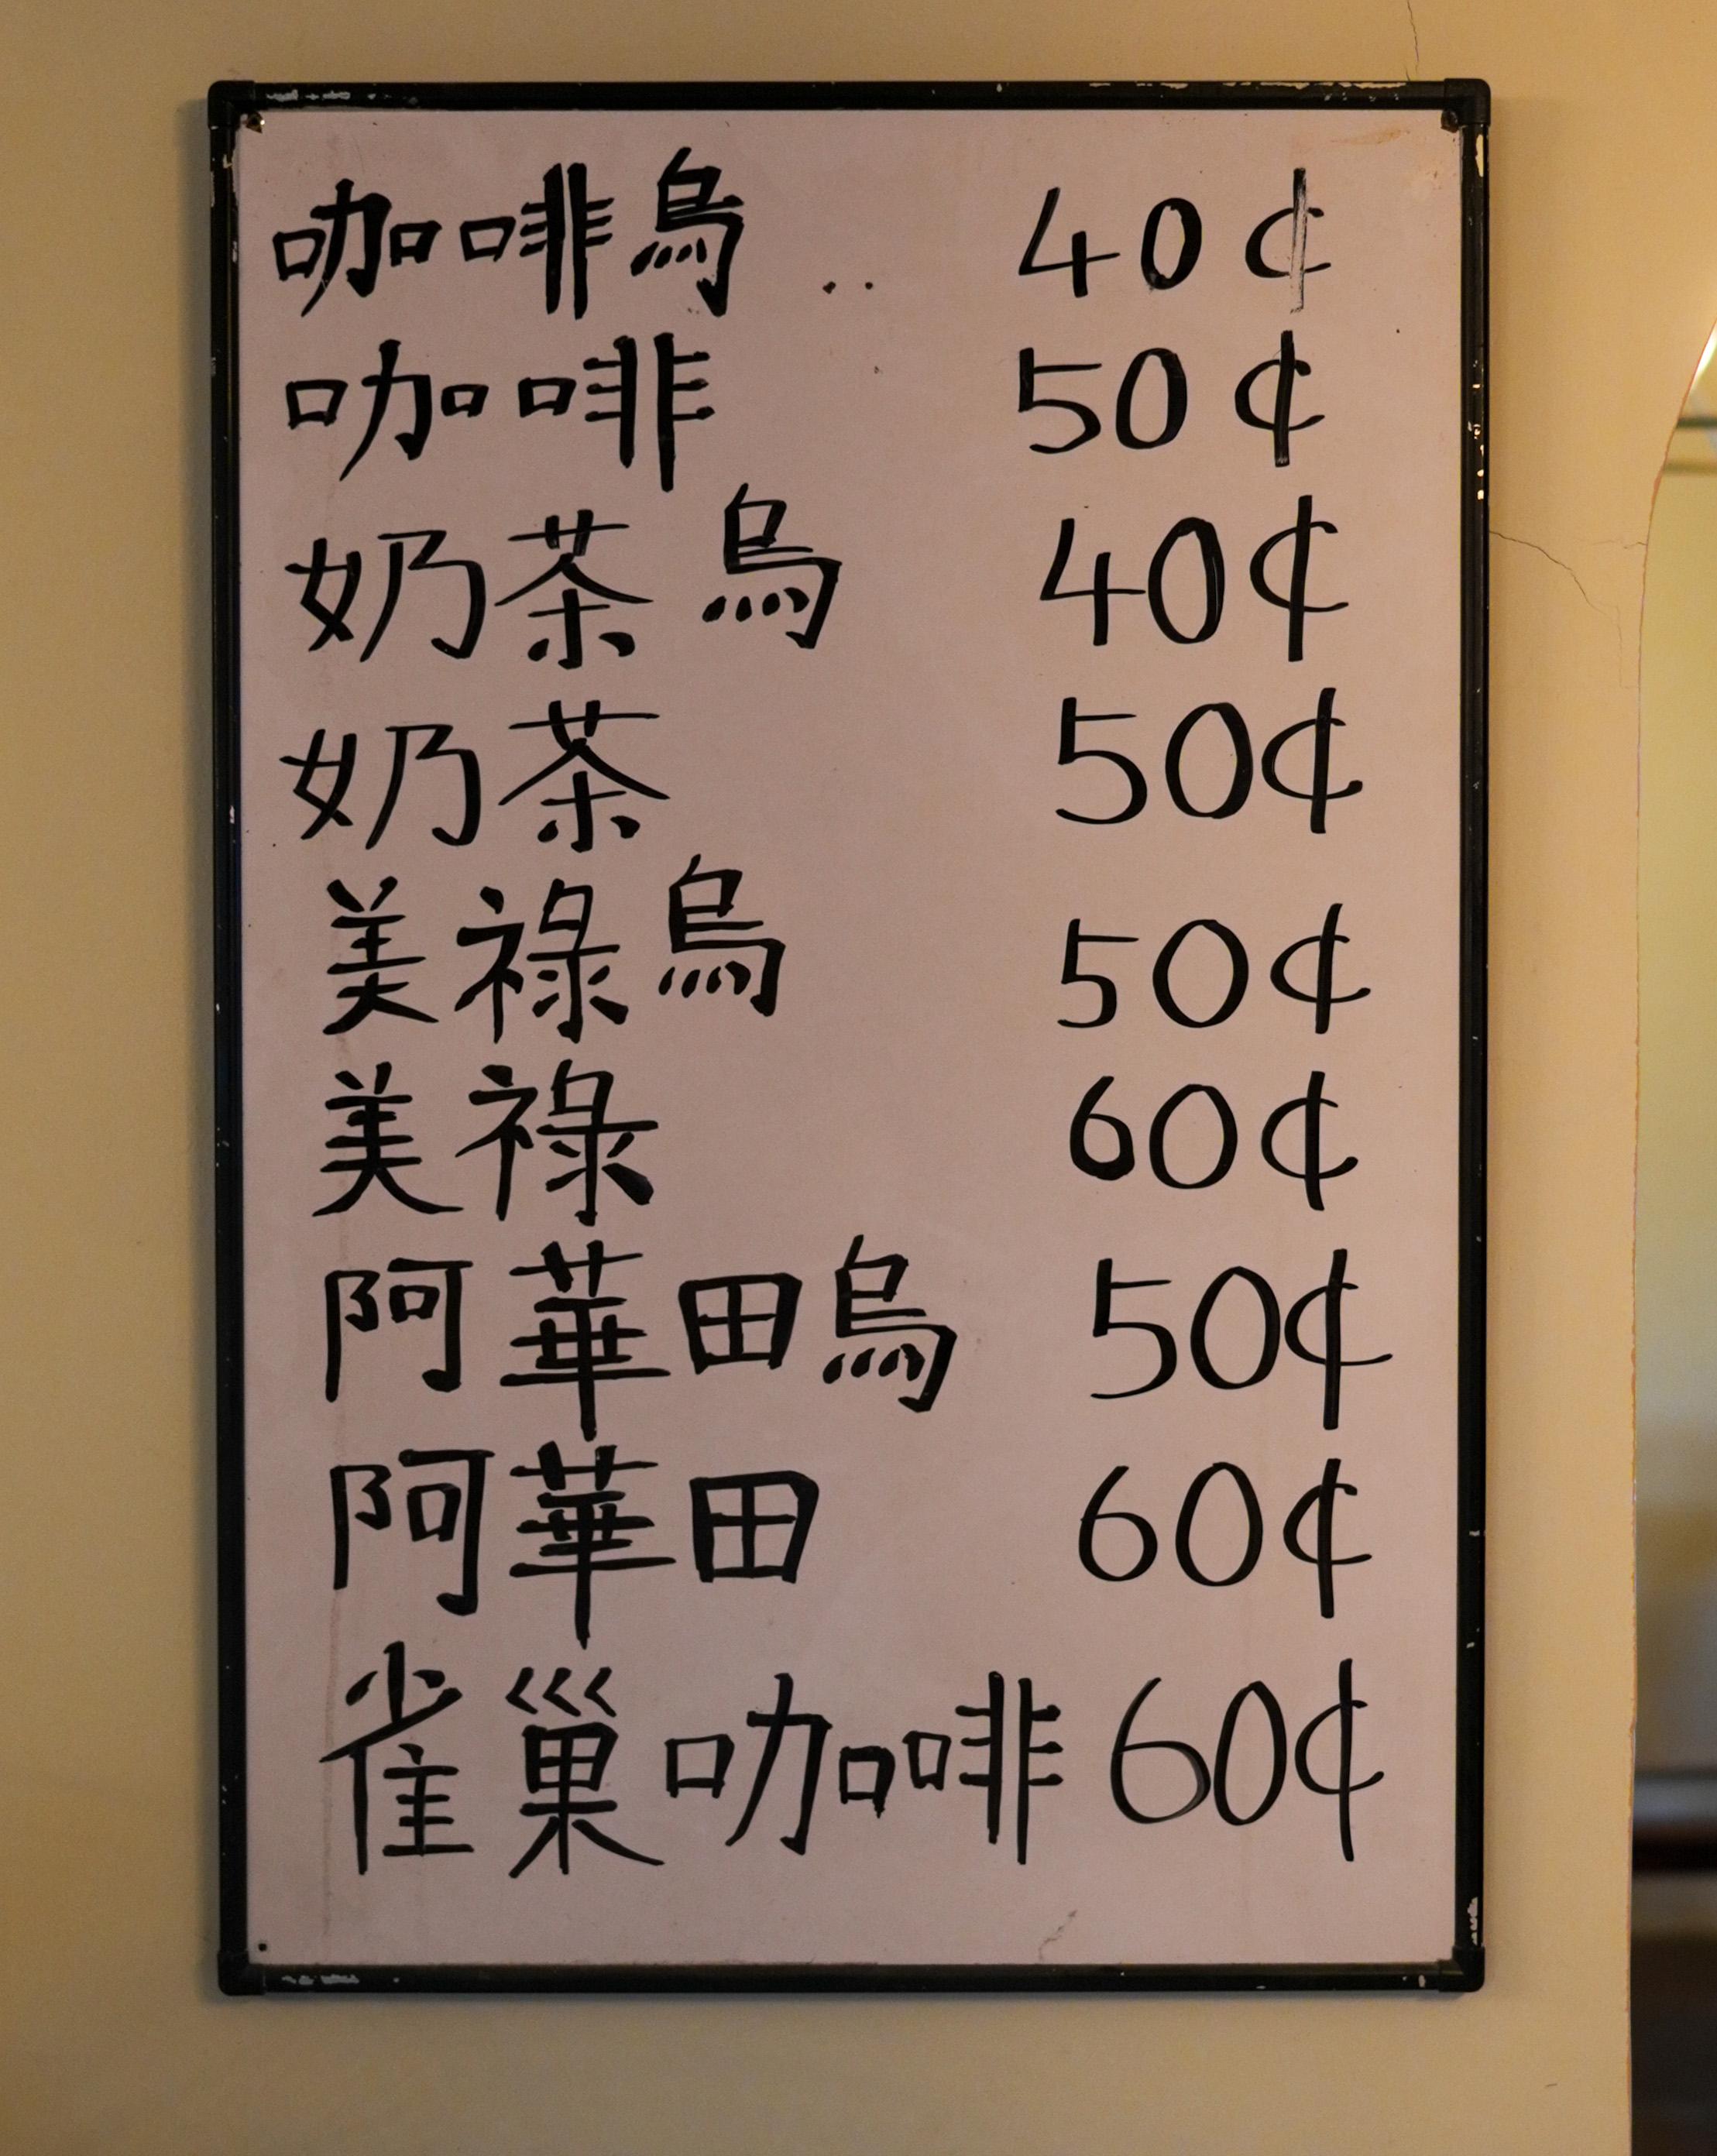 咖啡烏 .. 40¢
咖啡 50¢
奶茶烏 40¢
奶茶 50¢
美祿烏 50¢
美祿 60¢
阿華田烏 50¢
阿華田 60¢
雀巢咖啡 60¢